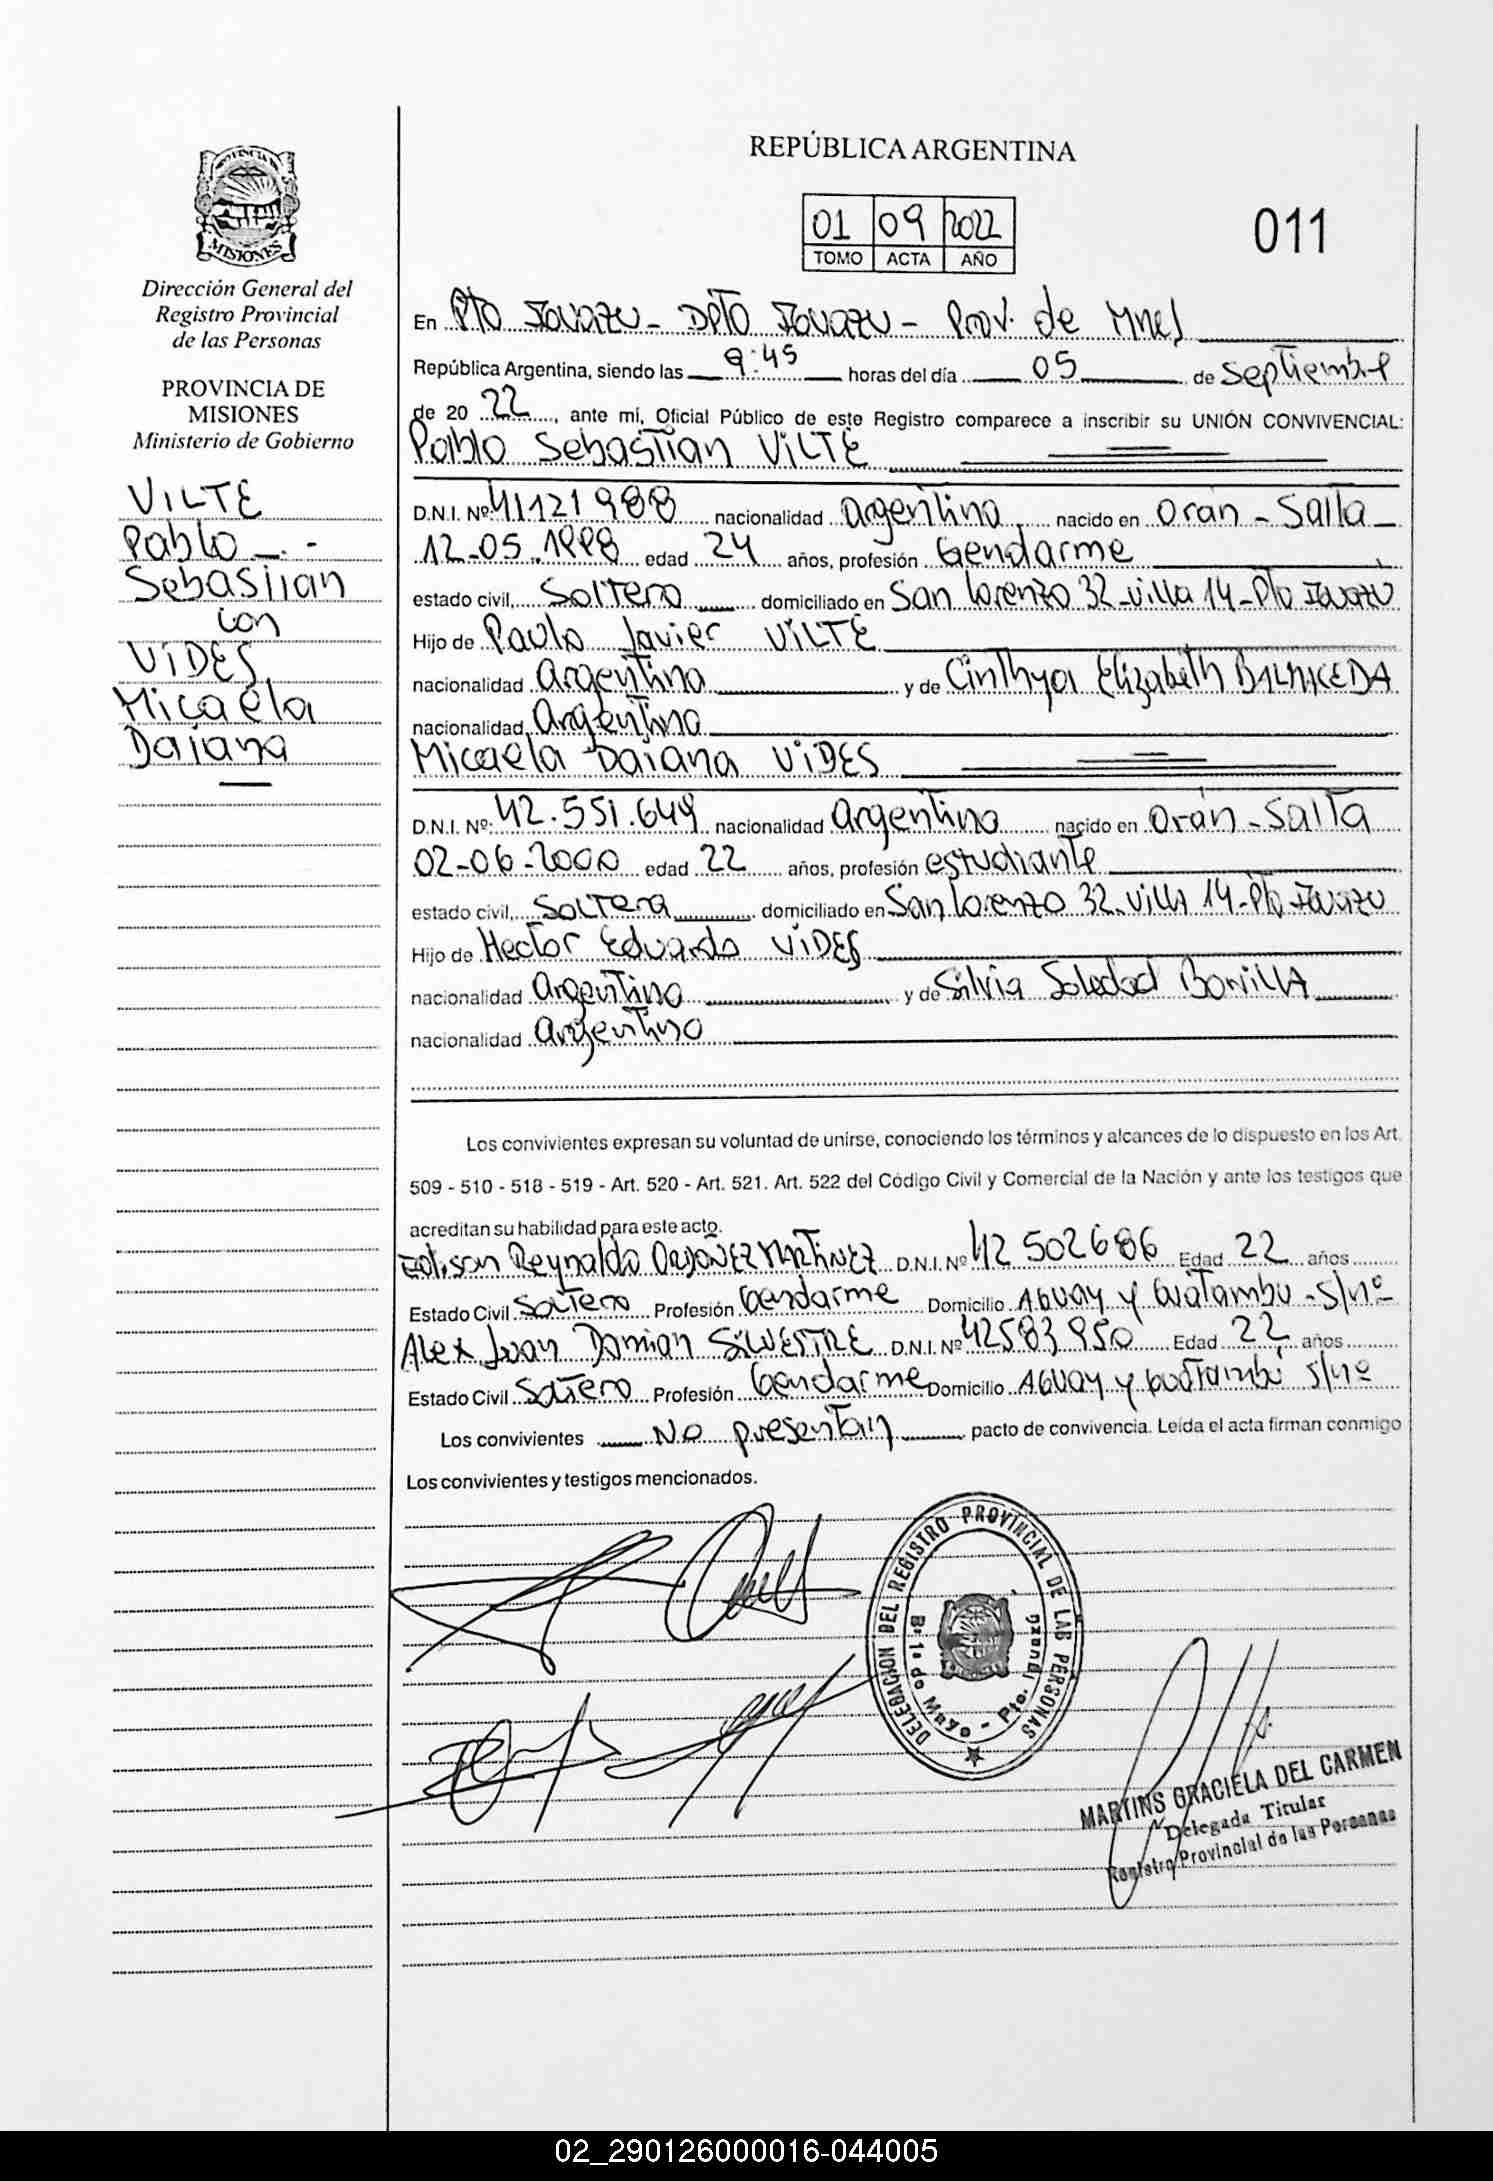 PROVINCIA DE
MISIONES
Dirección General del
Registro Provincial
de las Personas
PROVINCIA DE
MISIONES
Ministerio de Gobierno
VILTE
Pablo
Sebastian
con
VIDES
Micaela
Daiana
REPÚBLICA ARGENTINA
01 09 2022
TOMO ACTA AÑO
011
En Pto Iguazu - DPTO Iguazu - Prov. de Mnes
República Argentina, siendo las 9:45 horas del día 05 de septiembre
de 20 22, ante mí, Oficial Público de este Registro comparece a inscribir su UNIÓN CONVIVENCIAL:
Pablo Sebastian VILTE
D.N.I. Nº 41121988 nacionalidad argentina nacido en Orán - Salta -
12-05-1998 edad 24 años, profesión Gendarme
estado civil, Soltero domiciliado en San Lorenzo 32 - villa 14 - Pto Iguazú
Hijo de Paulo Javier VILTE
nacionalidad argentina y de Cinthya Elizabeth BALMACEDA
nacionalidad, argentina
Micaela Daiana VIDES
D.N.I. Nº: 42.551.649 nacionalidad argentina nacido en Orán - Salta
02-06-2000 edad 22 años, profesión estudiante
estado civil, Soltera domiciliado en San Lorenzo 32. villa 14 - Pto Iguazu
Hijo de Hector Eduardo VIDES
nacionalidad argentino y de Silvia Soledad BONILLA
nacionalidad argentino
Los convivientes expresan su voluntad de unirse, conociendo los términos y alcances de lo dispuesto en los Art.
509 - 510 - 518 - 519 - Art. 520 - Art. 521. Art. 522 del Código Civil y Comercial de la Nación y ante los testigos que
acreditan su habilidad para este acto.
Edison Reynaldo ORDOÑEZ MARTINEZ D.N.I. Nº 42 502686 Edad 22 años
Estado Civil Soltero Profesión Gendarme Domicilio Aguay y Guatambu - S/Nº
Alex Juan Damian SILVESTRE D.N.I. Nº 42583950 Edad 22 años
Estado Civil Soltero Profesión Gendarme Domicilio Aguay y Guatambú S/Nº
Los convivientes No presentan pacto de convivencia. Leída el acta firman conmigo
Los convivientes y testigos mencionados.
DELEGACION DEL REGISTRO PROVINCIAL DE LAS PERSONAS
Bº 1º de Mayo - Pto. Iguazú
MARTINS GRACIELA DEL CARMEN
Delegada Titular
Registro Provincial de las Personas
02_290126000016-044005